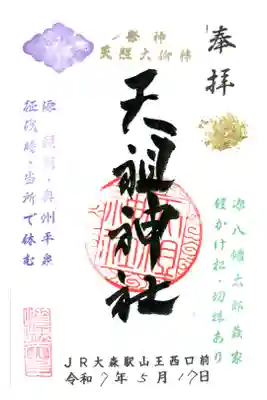 奉拝
祭神
天照大御神
源八幡太郎義家
鎧かけ松・切株あり
天祖神社
源頼朝・奥州平泉
征伐時・当所で休む
JR大森駅山王西口前
令和7年5月17日